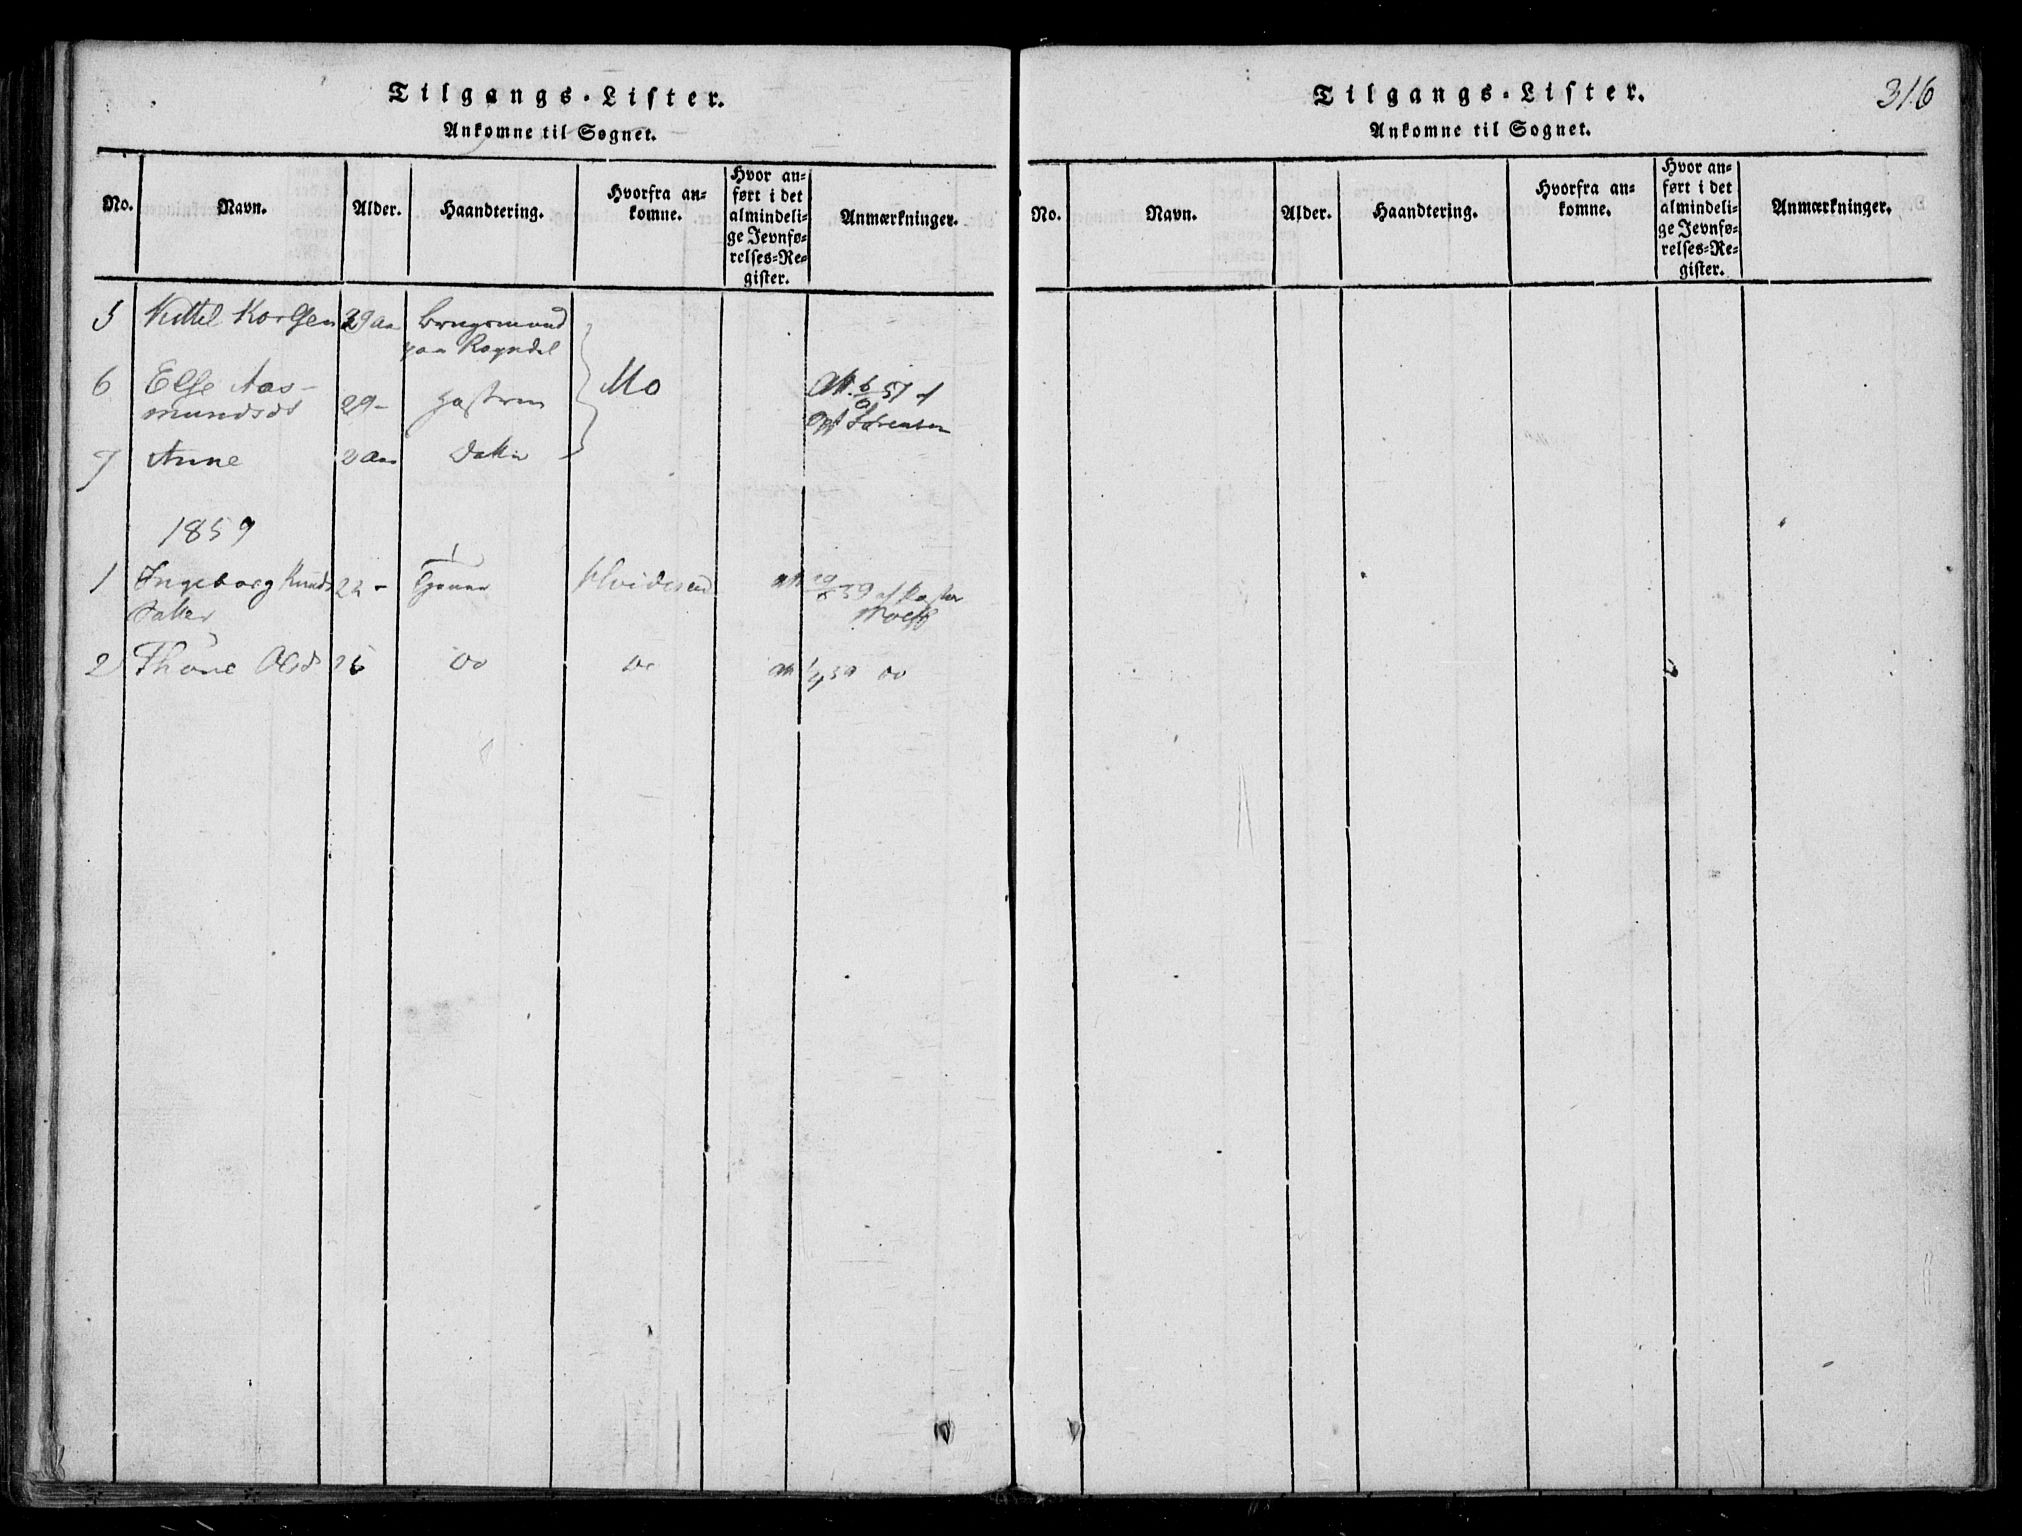 Tilgangs-Lister.
Ankomne til Sognet.
No. Navn. Alder. Haandtering. Hvorfra an=
komne. Hvor an=
ført i det
almindeli=
ge Jevnfø=
relses=Re=
gister. Anmærkninger.
5 Kittel Karlsen 29 Aar Brugsmand
paa Rogndal
6 Else Aas-
mundsdt 29 - Hustru Mo
Sørensen
7 Anne 2 Aar Datter
1859
1 Ingeborg Knuds 22 - Tjener Hvideseid 59 af Pastor
datter Wolff
2 Thone Olsd 26 Do Do 59 Do
Tilgangs-Lister. 316
Ankomne til Sognet.
No. Navn. Alder. Haandtering. Hvorfra an=
komne. Hvor an=
ført i det
almindeli=
ge Jevnfø=
relses=Re=
gister. Anmærkninger.